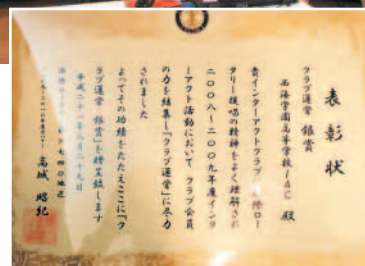 表彰状
クラブ運営 銀賞
西海学園高等学校IAC 殿
貴インターアクトクラブ 国際ロー
タリー提唱の精神をよく理解され
二〇〇八〜二〇〇九年度インタ
ーアクト活動において クラブ会員
の力を結集し「クラブ運営」に尽力
されました
よってその功績をたたえここに「ク
ラブ運営 銀賞」を贈呈致します
平成二十一年八月二十九日
高城 昭紀